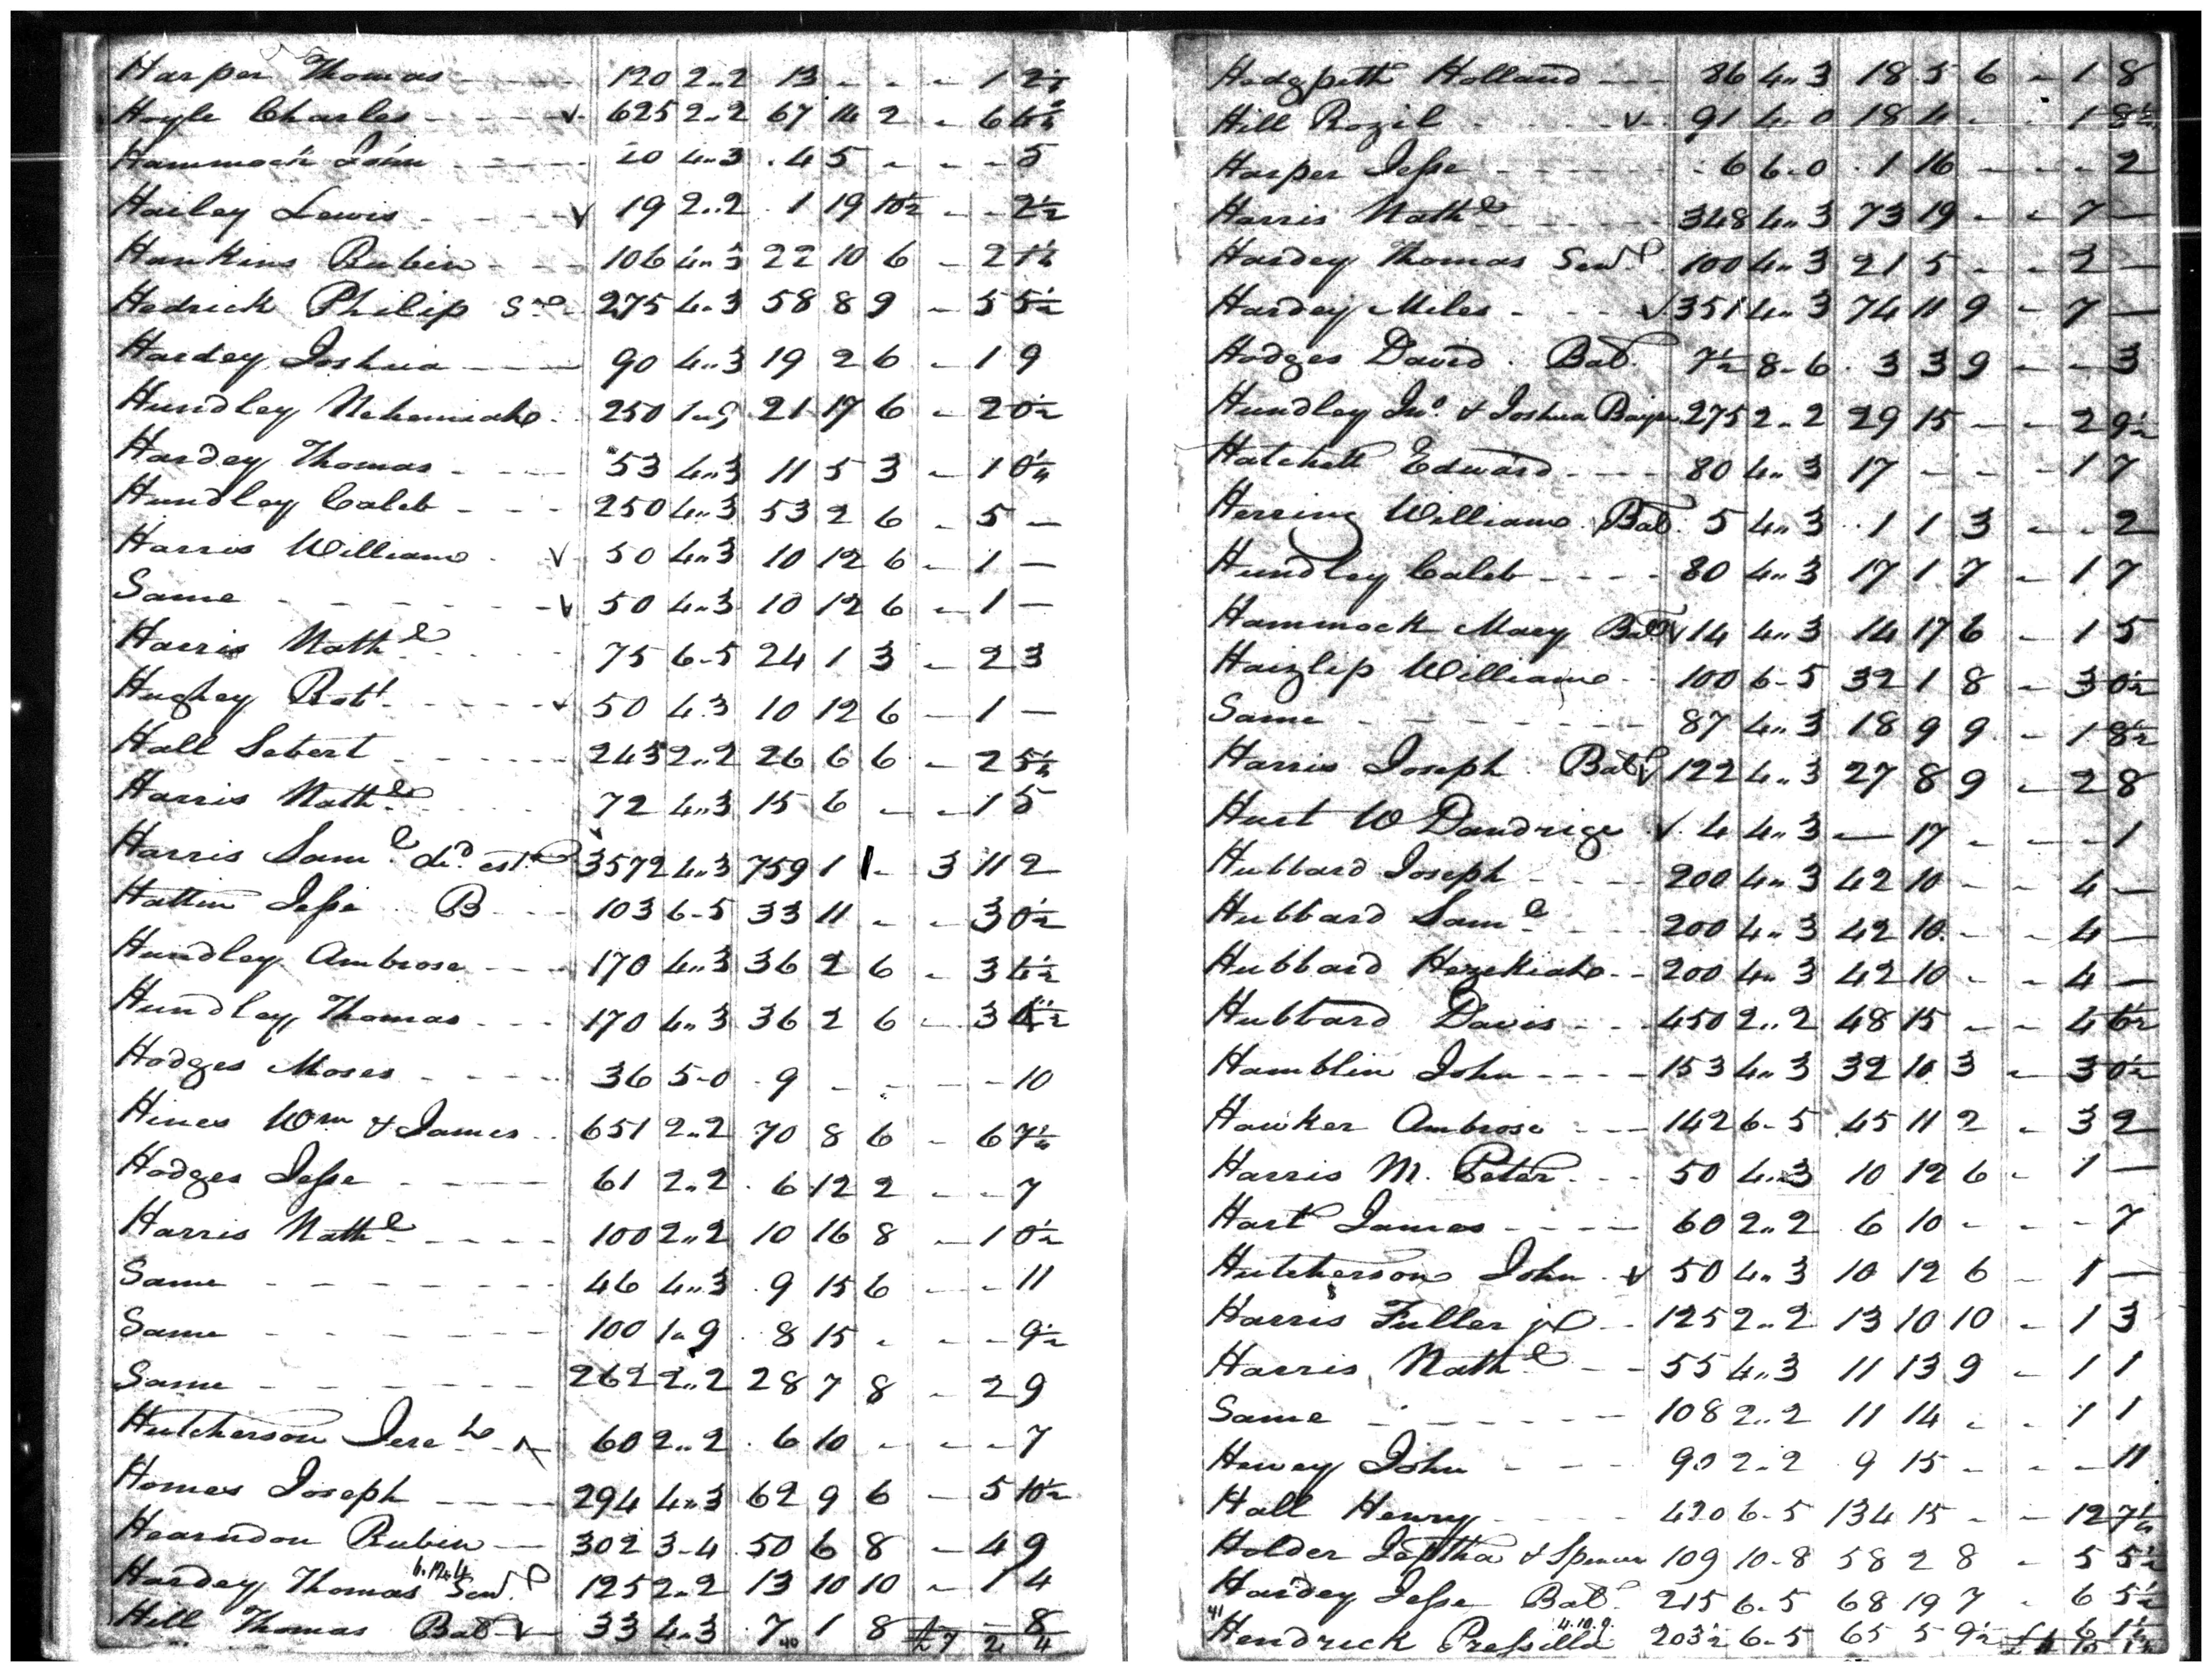 Harper Thomas - - - - 120 2..2 13 - - - 1 2½
Hoyle Charles - - - - v 625 2..2 67 14 2 - 6
Hammock John - - - - 20 4..3 . 4 5 - - - 5
Hailey Lewis - - - - v 19 2..2 . 1 19 10½ - - 2½
Hankins Rubin - - - 106 4..3 22 10 6 - 2 1¼
Hedrick Philip Sr 275 4..3 58 8 9 - 5 5½
Hardey Joshua - - - 90 4..3 19 2 6 - 1 9
Hundley Nehemiah . 250 1..9 21 17 6 - 2 0½
Hardey Thomas - - - 53 4..3 11 5 3 - 1 0¼
Hundley Caleb - - - 250 4..3 53 2 6 - 5 -
Harris William . v 50 4..3 10 12 6 - 1 -
Same - - - - - - v 50 4..3 10 12 6 - 1 -
Harris Nathl - - - 75 6-5 24 1 3 - 2 3
Hughey Robt - - - - v 50 4.3 10 12 6 - 1 -
Hall Sebert - - - - 243 2..2 26 6 6 - 2 5¼
Harris Nathl - - - 72 4..3 15 6 - - 1 5
Harris Saml dcd est. 3572 4..3 759 1 1 - 3 11 2
Hatten Jesse B - - 103 6-5 33 11 - - 3 0½
Hundley Ambrose - - - 170 4..3 36 2 6 - 3 4½
Hundley Thomas - - - 170 4..3 36 2 6 - 3 4½
Hodges Moses - - - - 36 5-0 . 9 - - - - 10
Hines Wm & James - - 651 2..2 70 8 6 - 6 7¼
Hodges Jesse - - - - 61 2..2 . 6 12 2 - - 7
Harris Nathl - - - - 100 2..2 10 16 8 - 1 0½
Same - - - - - - 46 4..3 . 9 15 6 - - 11
Same - - - - - - 100 1..9 . 8 15 - - - 9½
Same - - - - - - 262 2..2 28 7 8 - 2 9
Hutcherson Jereh - 60 2..2 . 6 10 - - - 7
Homes Joseph - - - 294 4..3 62 9 6 - 5 10½
Hearndon Rubin - - 302 3-4 50 6 8 - 4 9
6.12.4
Hardey Thomas Senr 125 2..2 13 10 10 - 1 4
Hill Thomas Bal v - 33 4..3 . 7 1 8 - - 8
40 £7 2 4
Hedgpeth Holland - - - 86 4..3 18 5 6 - 1 8
Hill Rozil - - - - v - 91 4-0 18 4 - - 1 8½
Harper Jesse - - - - - 6 6-0 . 1 16 - - - 2
Harris Nathl - - - - 348 4..3 73 19 - - 7 -
Hardey Thomas Senr 100 4..3 21 5 - - 2 -
Hardey Miles - - - v 351 4..3 74 11 9 - 7 -
Hodges David . Bal. 7½ 8-6 . 3 3 9 - - 3
Hundley Jno & Joshua 275 2..2 29 15 - - 2 9½
Hatchett Edward - - - 80 4..3 17 - - - 1 7
Herring William . Bal. 5 4..3 . 1 1 3 - - 2
Hundley Caleb - - - - 80 4..3 17 1 7 - 1 7
Hammock Mary Bal v 14 4..3 14 17 6 - 1 5
Haizlip William - - 100 6-5 32 1 8 - 3 0½
Same - - - - - - - 87 4..3 18 9 9 - 1 8½
Harris Joseph . Bal v 122 4..3 27 8 9 - 2 8
Hurt W Dandrige v. 4 4..3 - 17 - - - 1
Hubbard Joseph - - - 200 4..3 42 10 - - 4 -
Hubbard Saml - - - 200 4..3 42 10 - - 4 -
Hubbard Hezekiah - - 200 4..3 42 10 - - 4 -
Hubbard Davis - - - 450 2..2 48 15 - - 4 6½
Hamblin John - - - - 153 4..3 32 10 3 - 3 0½
Hawker Ambrose - - - 142 6-5 45 11 2 - 3 2
Harris M. Peter - - - 50 4..3 10 12 6 - 1 -
Hart James - - - - 60 2..2 6 10 - - - 7
Hutcherson John . v 50 4..3 10 12 6 - 1 -
Harris Fuller jr - - 125 2..2 13 10 10 - 1 3
Harris Nathl - - 55 4..3 11 13 9 - 1 1
Same - - - - - - 108 2..2 11 14 - - 1 1
Hewey John - - - 90 2..2 . 9 15 - - - 11
Hall Henry - - - - 420 6-5 134 15 - - 12 7¼
Holder Jeptha & Spencer 109 10-8 58 2 8 - 5 5½
Hardey Jesse Bal. 215 6-5 68 19 7 - 6 5½
41 4.10.9
Hendrick Pressilla 203½ 6-5 65 5 9½ 6 1½